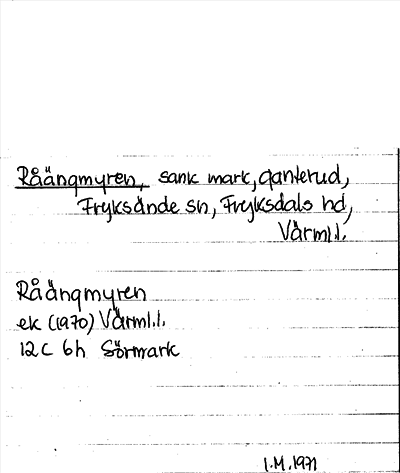 Råängmyren, sank mark, Ganterud,
Fryksände sn, Fryksdals hd,
Värml.l.
Råängmyren
ek (1970) Värml.l.
12C 6h Sörmark
I.M. 1971